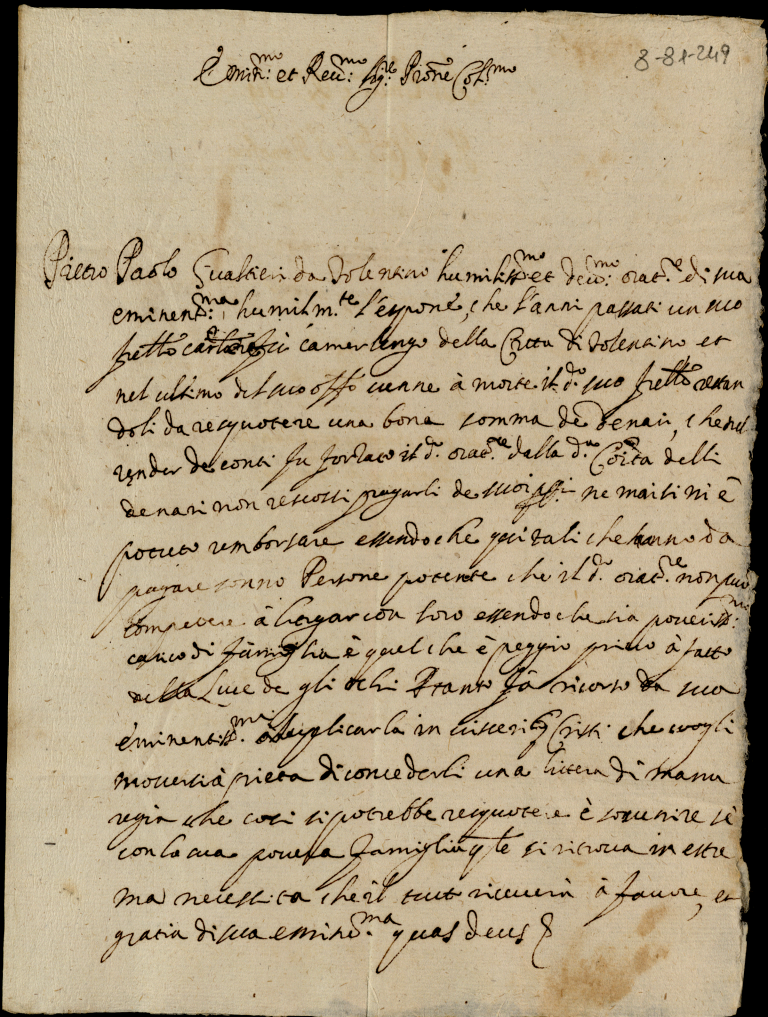 8-81-249
Emin.mo et Reu.mo Sig.re Prone Col.mo
Pietro Paolo Gualtieri da Tolentino humiliss.mo et deu.mo orat.re di sua
eminenz.ma humilm.te l'espone, che l'anni passati un suo
frello camerlengo della Città di Tolentino et
nel ultimo del suo offo uenne à morte il d.o suo frello restan
doli da resquotere una bona somma de denari, che nel
render de conti fu forzato il d.o orat.re dalla d.a Città delli
denari non rescossi pagarli de suoi ne mai si ni è
potuto remborsare essendo che quei tali che hanno da
pagare sonno Persone potente che il d.o orat.re non può
competere à litigar con loro essendo che sia poueriss.mo
carico di famiglia è quel che è peggio priuo à fatto
della Luce de gli ochi Ptanto fà ricorso da sua
eminentiss.ma à suplicarla in uisceribus Cristi che uogli
mouersi à pieta di concederli una littera di manu
regia che cosi si potrebbe resquotere è souenire sè
con la sua pouera famiglia q.le si ritroua in estre
ma necessita che il tutt riceuerà à fauore, et
gratia di sua emine.ma quas deus